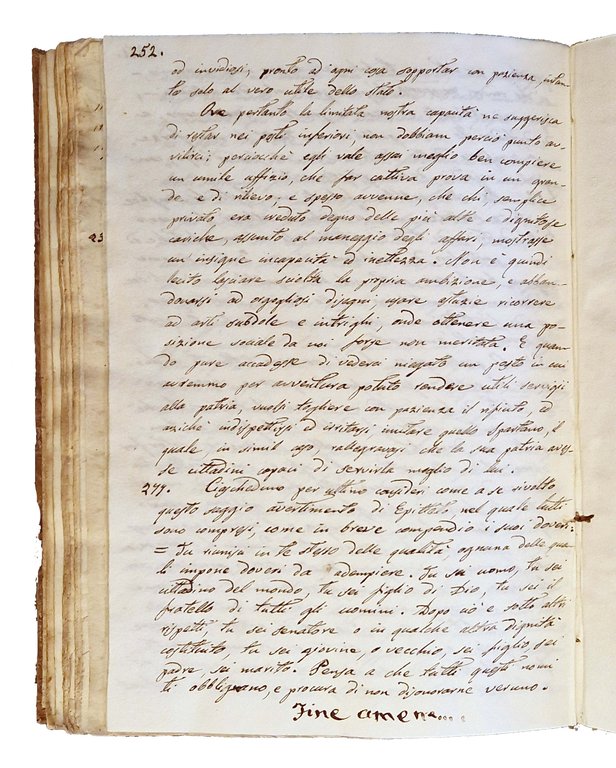 252.
ed invidiosi, pronto ad ogni cosa sopportar con pazienza, inten-
to solo al vero utile dello stato.
Ove pertanto la limitata nostra capacità ne suggerisca
di restar nei posti inferiori non dobbiam perciò punto av-
vilirci; perciocchè egli vale assai meglio ben compiere
un umile uffizio, che far cattiva prova in un gran-
de e di rilievo, e spesso avvenne, che chi, semplice
privato era creduto degno delle più alte e dignitose
cariche, assunto al maneggio degli affari, mostrasse
un'insigne incapacità ed inettezza. Non è quindi
lecito lasciare sciolta la propria ambizione, e abban-
donarsi ad orgogliosi disegni, usare astuzie ricorrere
ad arti subdole e intrighi, onde ottenere una po-
sizione sociale da noi forse non meritata. E quan-
do pure accadesse di vederci niegato un posto in cui
avremmo per avventura potuto rendere utili servigi
alla patria, vuolsi togliere con pazienza il rifiuto, ed
anzichè indispettirsi ed irritarsi, imitare quello Spartano, il
quale, in simil caso rallegravasi che la sua patria aves-
se cittadini capaci di servirla meglio di lui.
277. Ciascheduno per ultimo consideri come a se rivolto
questo saggio avertimento di Epitteto, nel quale tutti
sono compresi, come in breve compendio i suoi doveri
= Tu riunisci in te stesso delle qualità ognuna delle qua-
li impone doveri da adempiere. Tu sei uomo, tu sei
cittadino del mondo, tu sei figlio di Dio, tu sei il
fratello di tutti gli uomini. Dopo ciò e sotto altri
rispetti, tu sei senatore o in qualche altra dignità
costituito, tu sei giovine o vecchio, sei figlio, sei
padre sei marito. Pensa a che tutti questi nomi
ti obbligano, e procura di non disonorarne veruno.
Fine amen....
23